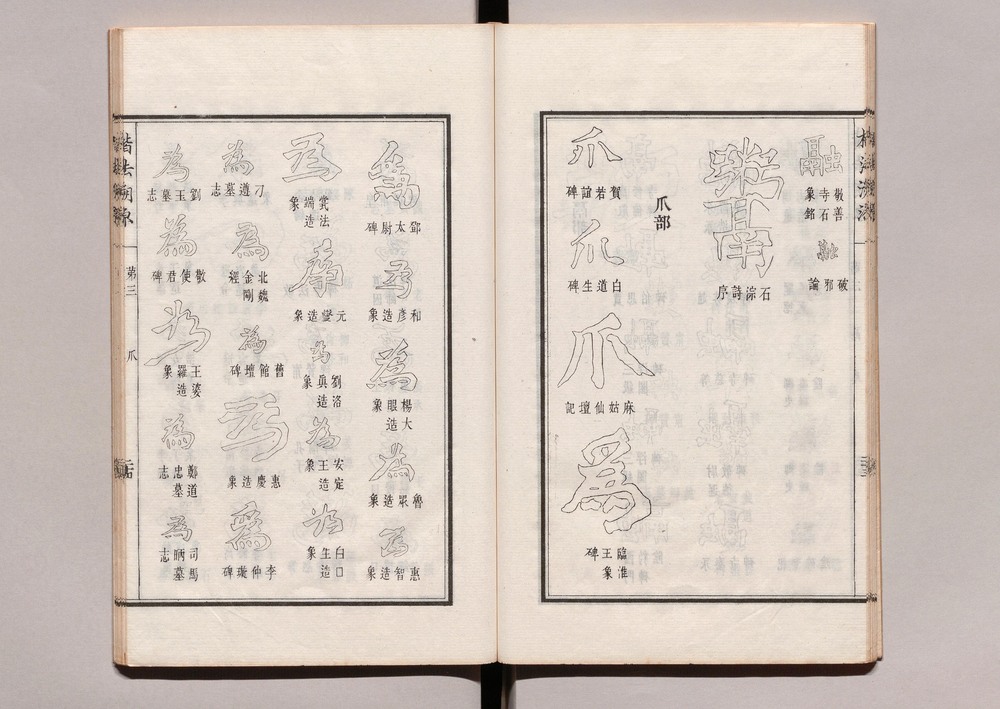 融
敬善寺石象銘
融
破邪論
石淙詩序
爪部
爪
賀若誼碑
爪
白道生碑
爪
麻姑仙壇記
爲
臨淮王象碑
爲
鄧太尉碑
爲
和彥造象
爲
楊大眼造象
爲
魯眾造象
爲
惠智造象
爲
法端造象
爲
元燮造象
爲
劉洛眞造象
爲
安定王造象
爲
白口生造象
爲
刁遵墓志
爲
北魏金剛經
爲
舊館壇碑
爲
惠慶造象
爲
李仲璇碑
爲
劉玉墓志
爲
敬使君碑
爲
王婆羅造象
爲
鄭道忠墓志
爲
司馬昞墓志
楷法溯源
第三
爪